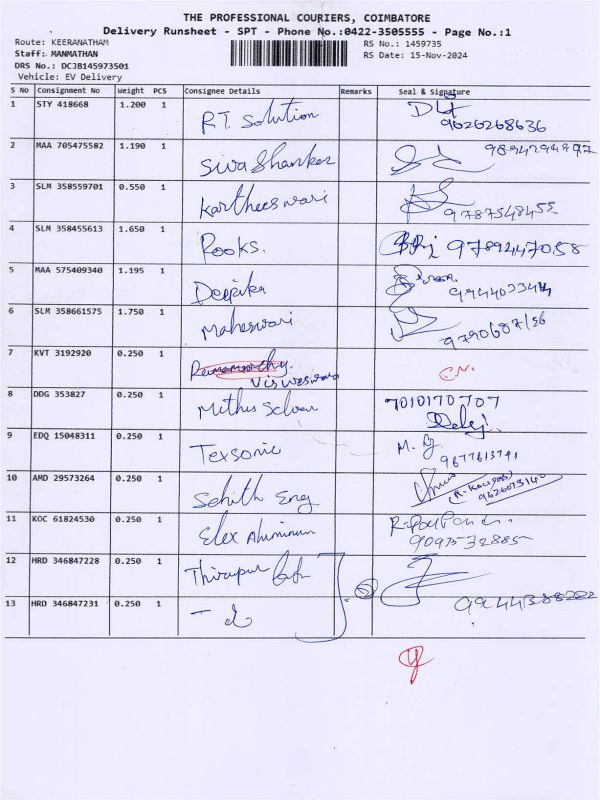 THE PROFESSIONAL COURIERS, COIMBATORE
Delivery Runsheet - SPT - Phone No.:0422-3505555 - Page No.:1
Route: KEERANATHAM
RS No.: 1459735
Staff: MANMATHAN
RS Date: 15-Nov-2024
DRS No.: DCJB145973501
Vehicle: EV Delivery
S No Consignment No Weight PCS Consignee Details Remarks Seal & Signature
1 STY 418668 1.200 1 R.T. Solution 9626268636
2 MAA 705475582 1.190 1 Siva Shanker
3 SLM 358559701 0.550 1 Kartheeswari 9787548455
4 SLM 358455613 1.650 1 Rooks. 9789247058
5 MAA 575409340 1.195 1 Deepika
6 SLM 358661575 1.750 1 Maheswari
7 KVT 3192920 0.250 1 Visweswara
8 DDG 353827 0.250 1 7010170707
9 EDQ 15048311 0.250 1 Texsonic 9677613791
10 AMD 29573264 0.250 1 Sehith Eng
11 KOC 61824530 0.250 1 Elex Aluminum
12 HRD 346847228 0.250 1 Thirupur
13 HRD 346847231 0.250 1